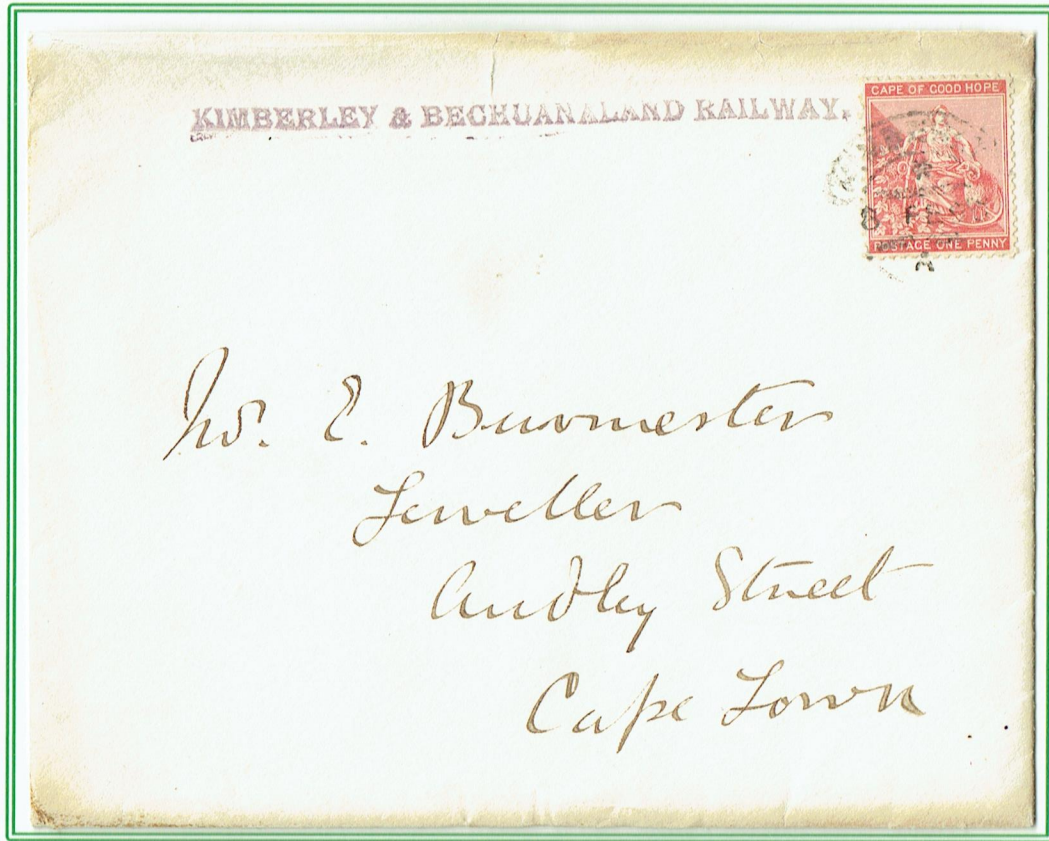 KIMBERLEY & BECHUANALAND RAILWAY.
CAPE OF GOOD HOPE
8 FE
POSTAGE ONE PENNY
E. Burmester
Jeweller
Audley Street
Cape Town